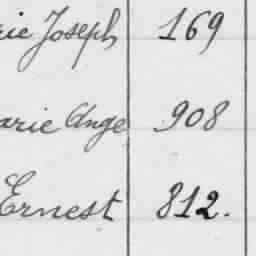 rie Joseph 169
arie Ange 908
Ernest 812.